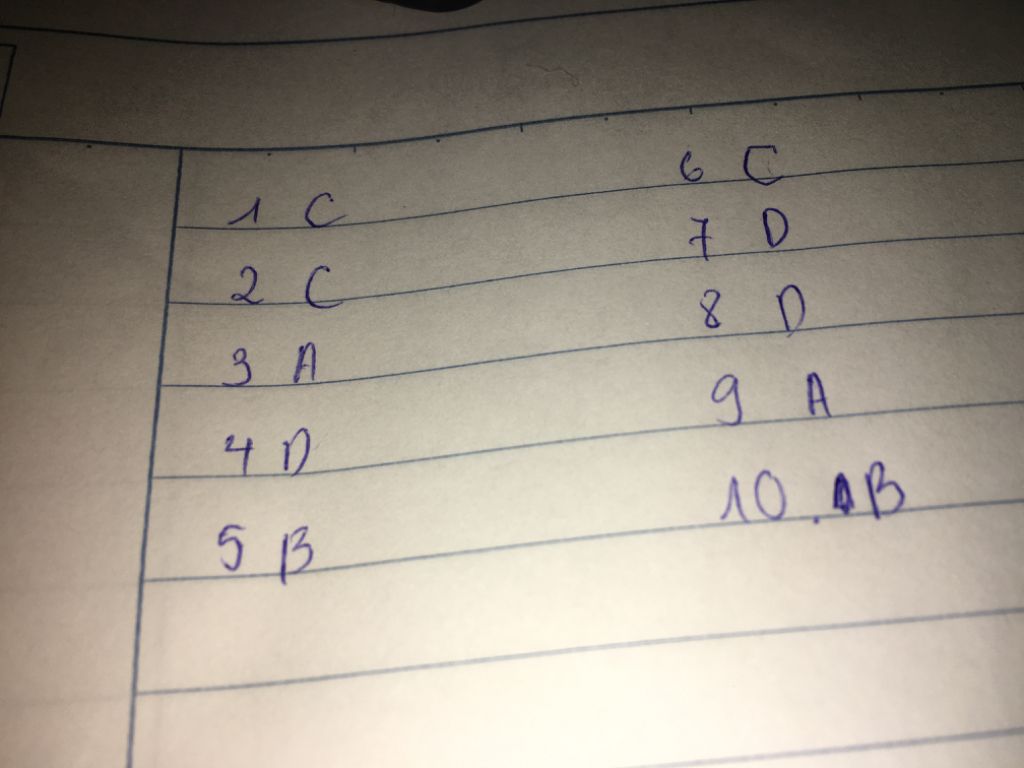 1 C
2 C
3 A
4 D
5 B
6 C
7 D
8 D
9 A
10. B